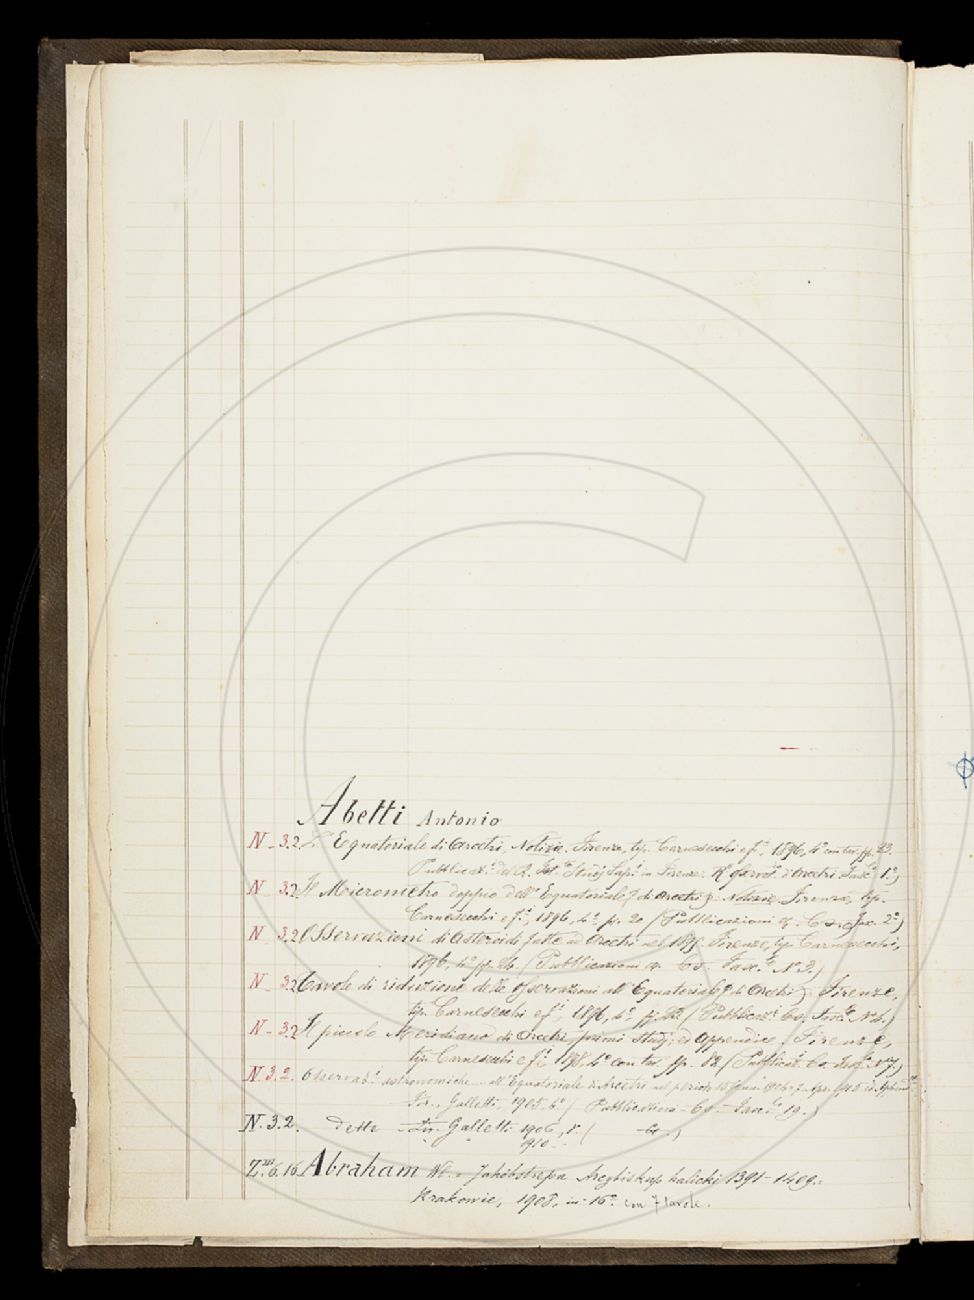 Abetti Antonio
N_3.2 L'Equatoriale di Arcetri, Notizie, Firenze, tip. Carnesecchi e f.i, 1896, 4.° con tav. pp. 23.
Pubblicaz.i del R. Ist.o Studj Sup.i in Firenze. R.o Osserv.o d'Arcetri. Fasc.o 1.°)
N 3.2 Il Micrometro doppio dell' Equatoriale di Arcetri. Notizie Firenze, tip.
Carnesecchi e f.i, 1896, 4.°, pp. 20 (Pubblicazioni Cs. Fasc. 2.°)
N_3.2 Osservazioni di Asteroidi fatte ad Arcetri nel 1895. Firenze, tip. Carnesecchi,
1896, 4.° pp. 24. (Pubblicazioni Cs. Fasc.o N.3.)
N_3.2 Tavole di riduzione delle osservazioni all' Equatoriale di Arcetri. Firenze,
tip. Carnesecchi e f.i, 1896, 4.°, pp. (Pubblicaz.i Cs. Fasc.o N.4.)
N_3.2 Il piccolo Meridiano di Arcetri, primi Studj ed Appendice. Firenze,
tip. Carnesecchi e f.i 1898, 4.° con tav. pp. 82. (Pubblicaz.i Cs. Fasc.o N.7.)
N.3.2. Osservaz.i astronomiche all'Equatoriale di Arcetri nel
Fir., Galletti, 1905. 4.° (Pubblicazioni - Cs. - Fasc.o 19.)
N.3.2. dette Fir. Galletti 1906,
" " 1910
Z.m 6.16. Abraham Wl. - Jakób Strepa Arcybiskup halicki 1391 - 1409.
Krakowie, 1908, in-16.° con 7 tavole.